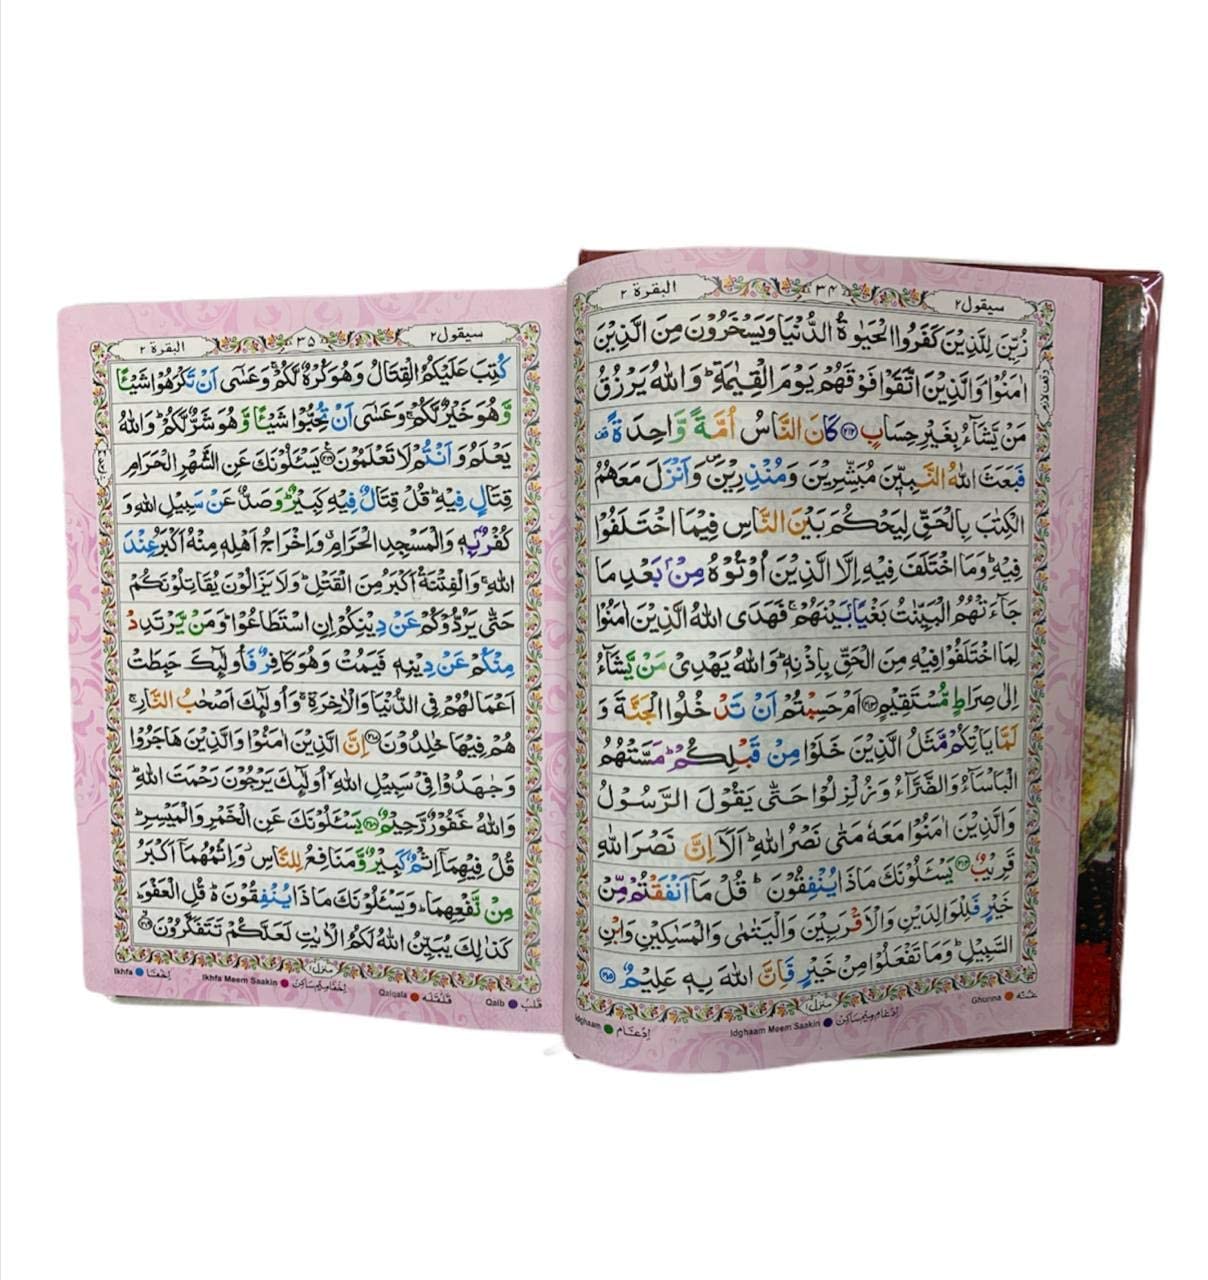 سيقول ٢
٣٤
البقرة ٢
زُيِّنَ لِلَّذِيْنَ كَفَرُوا الْحَيٰوةُ الدُّنْيَا وَيَسْخَرُوْنَ مِنَ الَّذِيْنَ
اٰمَنُوْا وَالَّذِيْنَ اتَّقَوْا فَوْقَهُمْ يَوْمَ الْقِيٰمَةِ وَاللّٰهُ يَرْزُقُ
مَنْ يَّشَآءُ بِغَيْرِ حِسَابٍ ٢١٢ كَانَ النَّاسُ اُمَّةً وَّاحِدَةً
فَبَعَثَ اللّٰهُ النَّبِيّٖنَ مُبَشِّرِيْنَ وَمُنْذِرِيْنَ وَاَنْزَلَ مَعَهُمُ
الْكِتٰبَ بِالْحَقِّ لِيَحْكُمَ بَيْنَ النَّاسِ فِيْمَا اخْتَلَفُوْا
فِيْهِ وَمَا اخْتَلَفَ فِيْهِ اِلَّا الَّذِيْنَ اُوْتُوْهُ مِنْۢ بَعْدِ مَا
جَآءَتْهُمُ الْبَيِّنٰتُ بَغْيًۢا بَيْنَهُمْ فَهَدَى اللّٰهُ الَّذِيْنَ اٰمَنُوْا
لِمَا اخْتَلَفُوْا فِيْهِ مِنَ الْحَقِّ بِاِذْنِهٖ وَاللّٰهُ يَهْدِيْ مَنْ يَّشَآءُ
اِلٰى صِرَاطٍ مُّسْتَقِيْمٍ ٢١٣ اَمْ حَسِبْتُمْ اَنْ تَدْخُلُوا الْجَنَّةَ وَ
لَمَّا يَاْتِكُمْ مَّثَلُ الَّذِيْنَ خَلَوْا مِنْ قَبْلِكُمْ مَسَّتْهُمُ
الْبَاْسَآءُ وَالضَّرَّآءُ وَزُلْزِلُوْا حَتّٰى يَقُوْلَ الرَّسُوْلُ
وَالَّذِيْنَ اٰمَنُوْا مَعَهٗ مَتٰى نَصْرُ اللّٰهِ اَلَآ اِنَّ نَصْرَ اللّٰهِ
قَرِيْبٌ ٢١٤ يَسْـَٔلُوْنَكَ مَاذَا يُنْفِقُوْنَ قُلْ مَآ اَنْفَقْتُمْ مِّنْ
خَيْرٍ فَلِلْوَالِدَيْنِ وَالْاَقْرَبِيْنَ وَالْيَتٰمٰى وَالْمَسٰكِيْنِ وَابْنِ
السَّبِيْلِ وَمَا تَفْعَلُوْا مِنْ خَيْرٍ فَاِنَّ اللّٰهَ بِهٖ عَلِيْمٌ ٢١٥
منزل ١
Ghunna غنه
Idghaam Meem Saakin ادغام ميم ساكن
Idghaam ادغام
سيقول ٢
٣٥
البقرة ٢
كُتِبَ عَلَيْكُمُ الْقِتَالُ وَهُوَ كُرْهٌ لَّكُمْ وَعَسٰٓى اَنْ تَكْرَهُوْا شَيْـًٔا
وَّهُوَ خَيْرٌ لَّكُمْ وَعَسٰٓى اَنْ تُحِبُّوْا شَيْـًٔا وَّهُوَ شَرٌّ لَّكُمْ وَاللّٰهُ
يَعْلَمُ وَاَنْتُمْ لَا تَعْلَمُوْنَ ٢١٦ يَسْـَٔلُوْنَكَ عَنِ الشَّهْرِ الْحَرَامِ
قِتَالٍ فِيْهِ قُلْ قِتَالٌ فِيْهِ كَبِيْرٌ وَصَدٌّ عَنْ سَبِيْلِ اللّٰهِ وَ
كُفْرٌۢ بِهٖ وَالْمَسْجِدِ الْحَرَامِ وَاِخْرَاجُ اَهْلِهٖ مِنْهُ اَكْبَرُ عِنْدَ
اللّٰهِ وَالْفِتْنَةُ اَكْبَرُ مِنَ الْقَتْلِ وَلَا يَزَالُوْنَ يُقَاتِلُوْنَكُمْ
حَتّٰى يَرُدُّوْكُمْ عَنْ دِيْنِكُمْ اِنِ اسْتَطَاعُوْا وَمَنْ يَّرْتَدِدْ
مِنْكُمْ عَنْ دِيْنِهٖ فَيَمُتْ وَهُوَ كَافِرٌ فَاُولٰٓئِكَ حَبِطَتْ
اَعْمَالُهُمْ فِي الدُّنْيَا وَالْاٰخِرَةِ وَاُولٰٓئِكَ اَصْحٰبُ النَّارِ
هُمْ فِيْهَا خٰلِدُوْنَ ٢١٧ اِنَّ الَّذِيْنَ اٰمَنُوْا وَالَّذِيْنَ هَاجَرُوْا
وَجٰهَدُوْا فِيْ سَبِيْلِ اللّٰهِ اُولٰٓئِكَ يَرْجُوْنَ رَحْمَتَ اللّٰهِ
وَاللّٰهُ غَفُوْرٌ رَّحِيْمٌ ٢١٨ يَسْـَٔلُوْنَكَ عَنِ الْخَمْرِ وَالْمَيْسِرِ
قُلْ فِيْهِمَآ اِثْمٌ كَبِيْرٌ وَّمَنَافِعُ لِلنَّاسِ وَاِثْمُهُمَآ اَكْبَرُ
مِنْ نَّفْعِهِمَا وَيَسْـَٔلُوْنَكَ مَاذَا يُنْفِقُوْنَ قُلِ الْعَفْوَ
كَذٰلِكَ يُبَيِّنُ اللّٰهُ لَكُمُ الْاٰيٰتِ لَعَلَّكُمْ تَتَفَكَّرُوْنَ ٢١٩
منزل ١
Qalb قلب
Qalqala قلقله
Ikhfa Meem Saakin اخفا ميم ساكن
Ikhfa اخفا